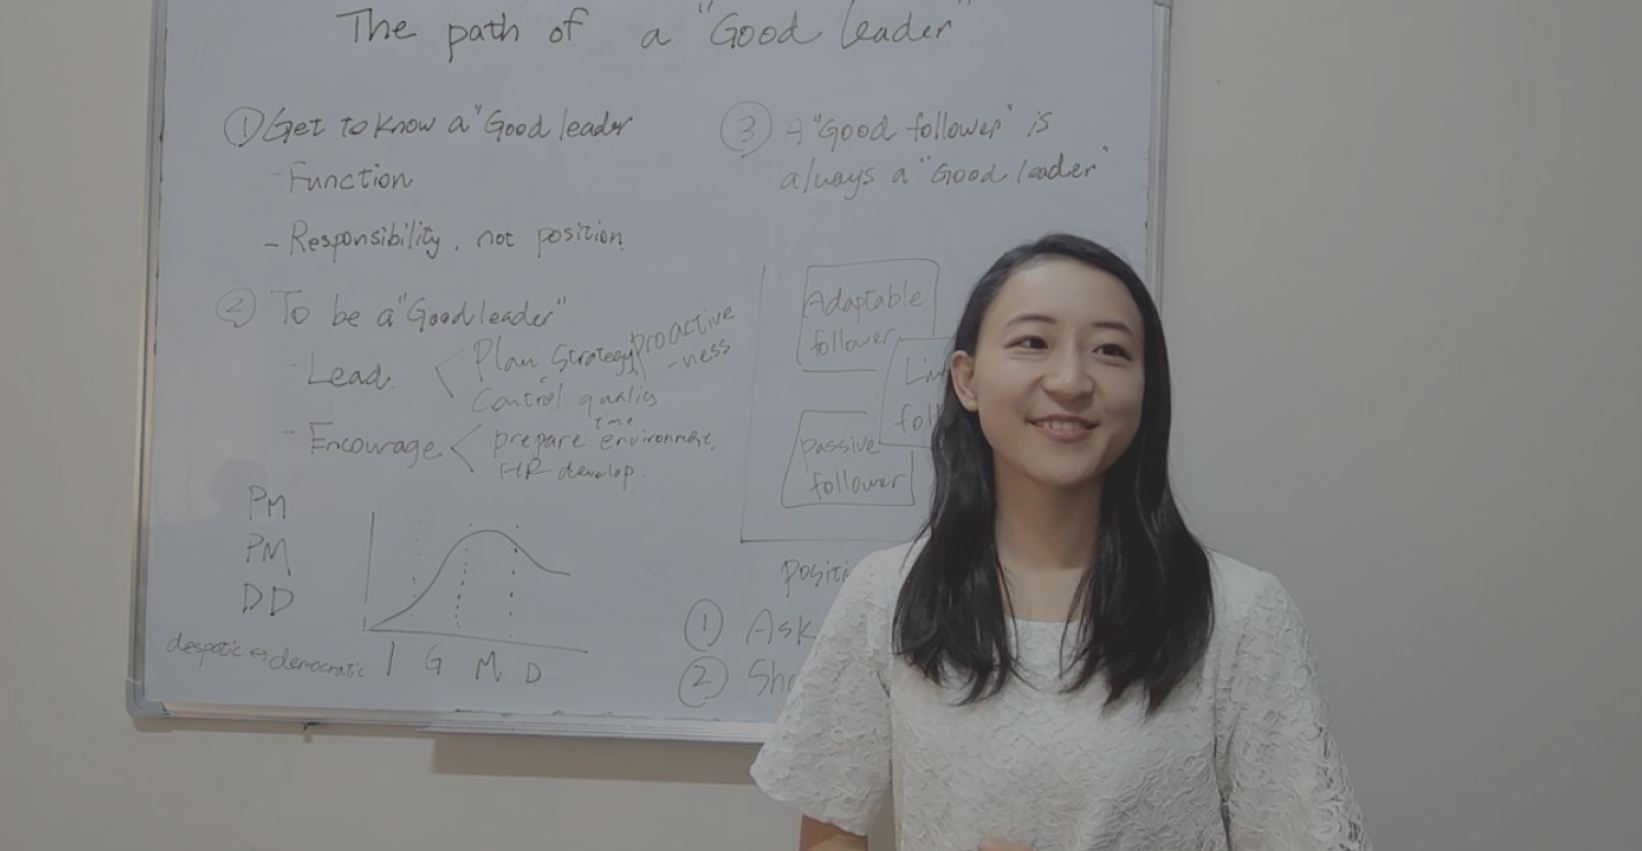 The path of a "Good leader"
① Get to know a "Good leader
- Function
- Responsibility, not position.
② To be a "Good leader"
- Lead. < Plan Strategy proactive
-ness
Control quality
time
- Encourage < prepare environment.
HR develop.
PM
PM
DD
despotic ↔ democratic
I G M D
③ A "Good follower" is
always a "Good leader"
Adaptable
follower
passive
follower
① Ask
②